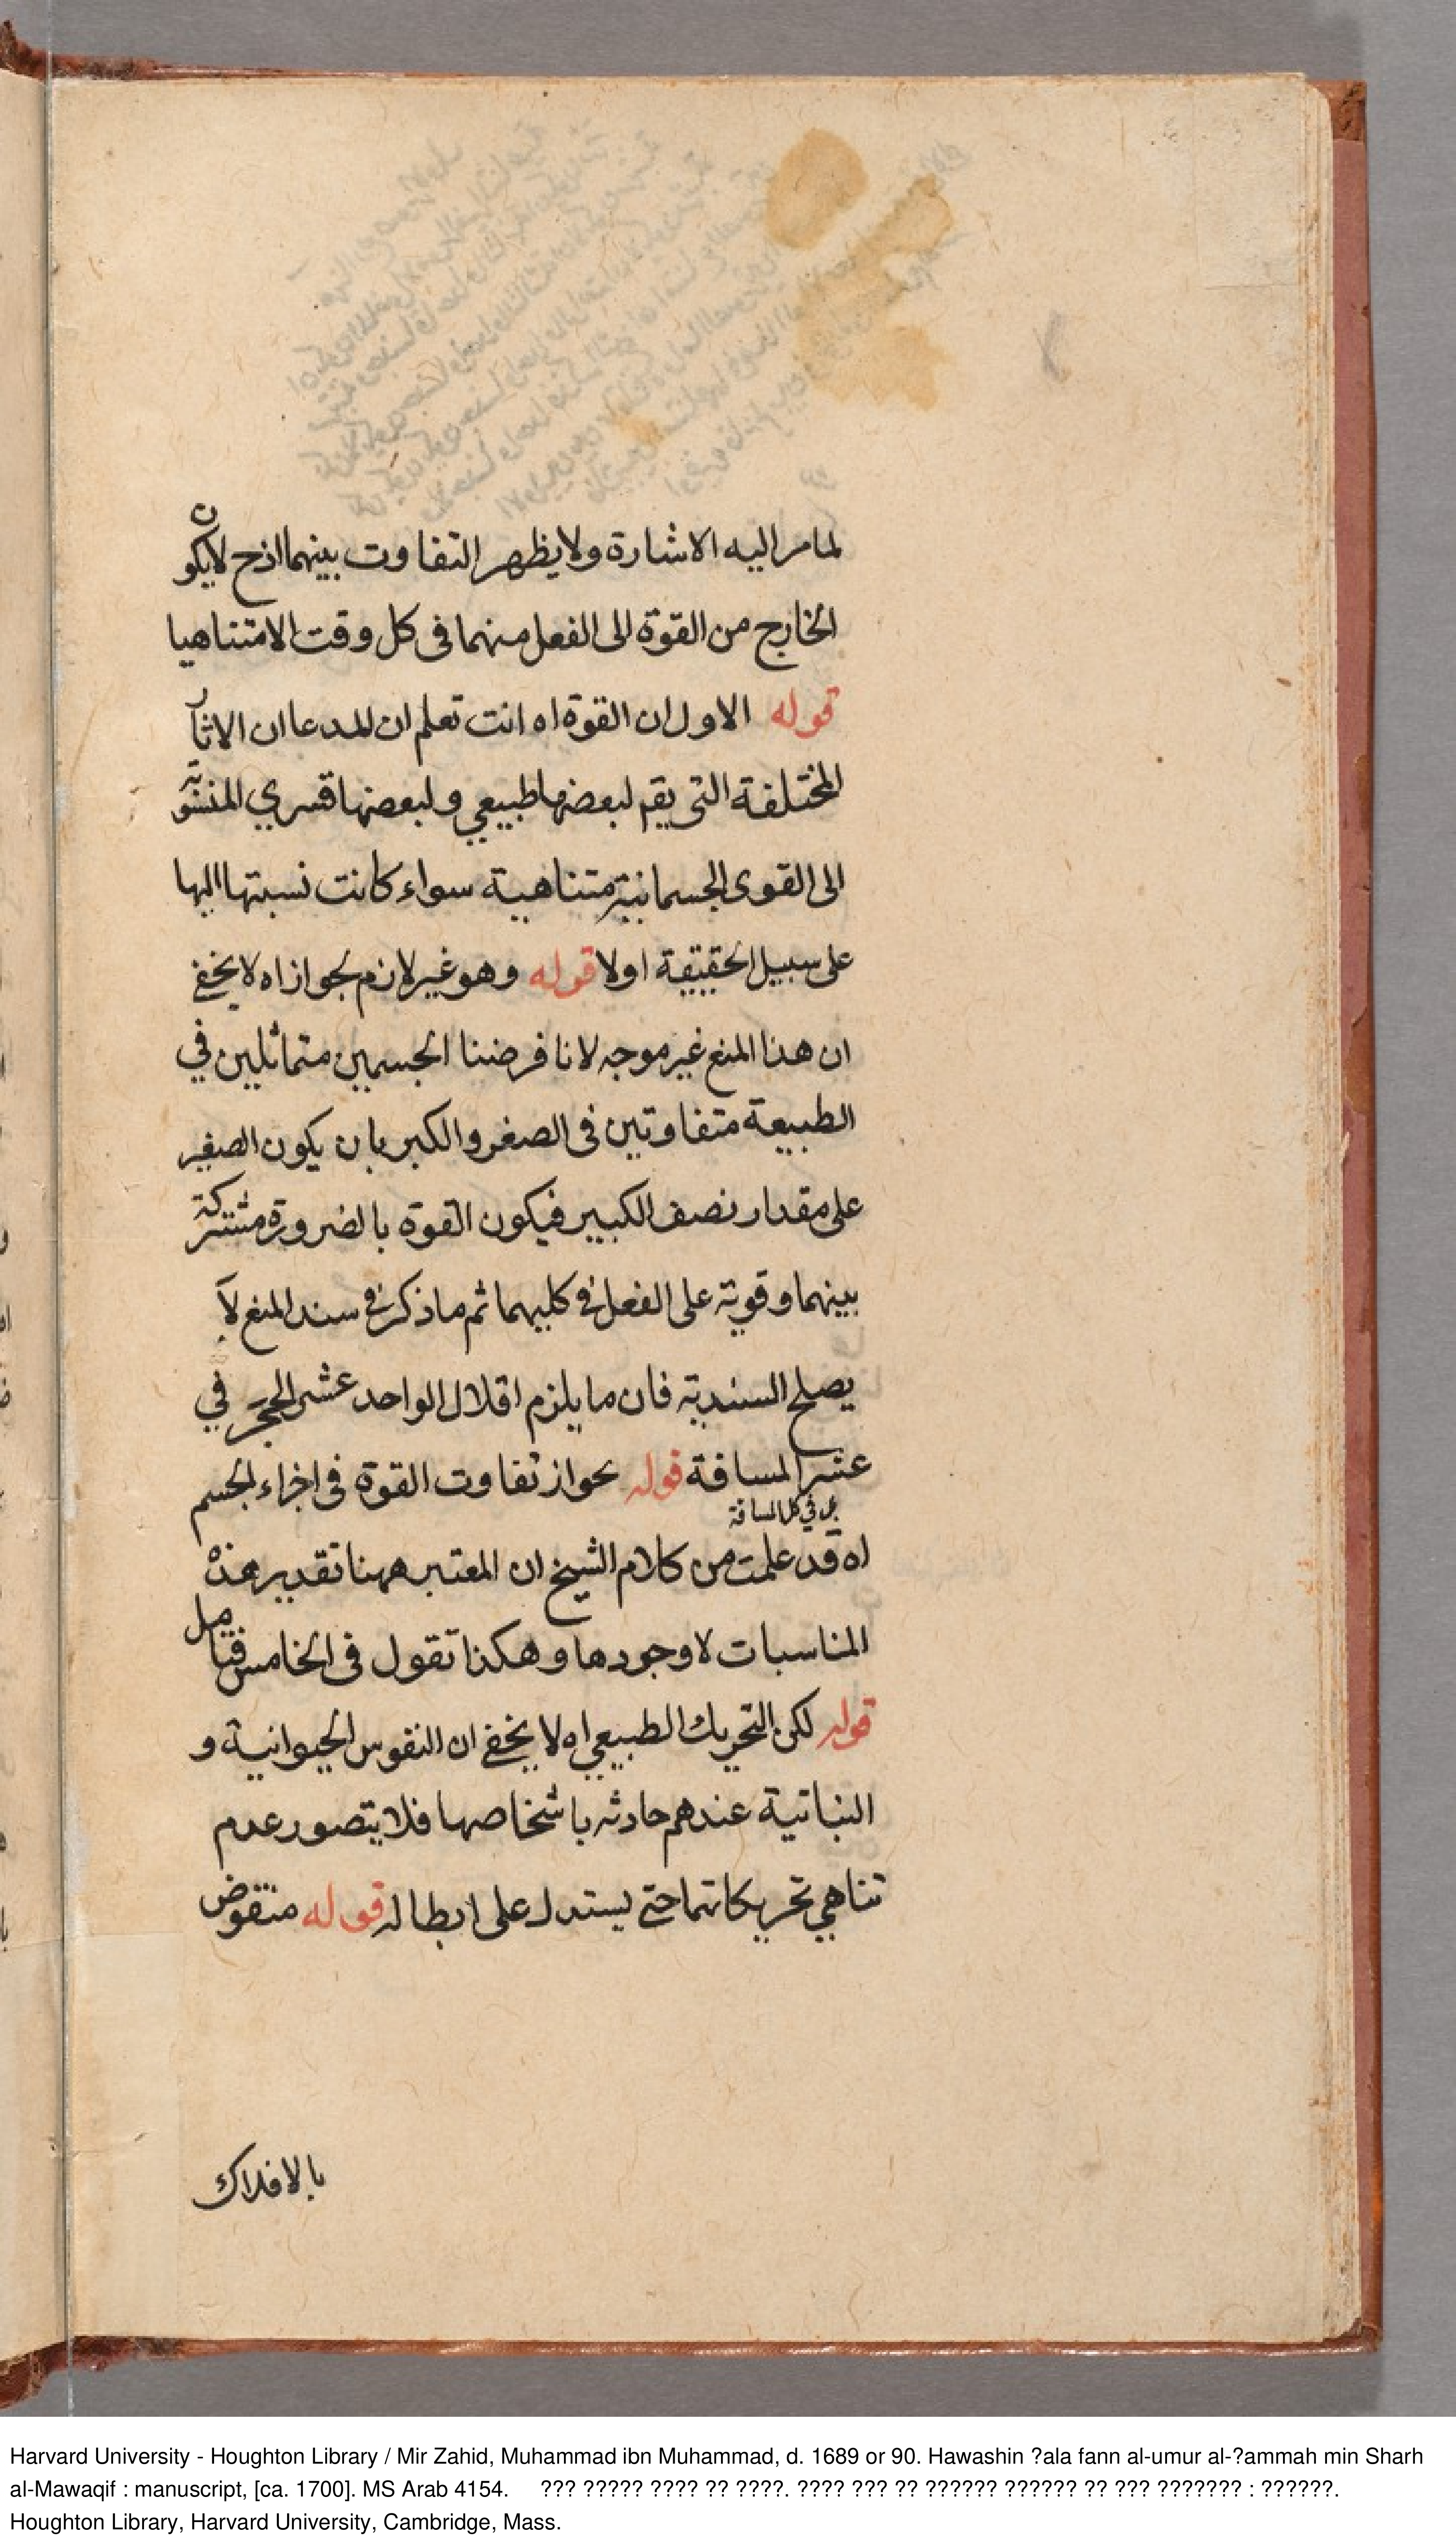 لمامر اليه الاشارة ولا يظهر التفاوت بينهما اذح لايكون
الخارج من القوة الى الفعل منهما فى كل وقت الامتناهيا
قوله الاول ان القوة اه انت تعلم ان المدعا ان الاثار
المختلفة التى يقم لبعضها طبيعي ولبعضها قسري المنسوبة
الى القوى الجسمانية متناهية سواء كانت نسبتها اليها
على سبيل الحقيقة اولا قوله وهو غير لازم لجواز اه لا يخفى
ان هذا المنع غير موجه لانا فرضنا الجسمين متماثلين في
الطبيعة متفاوتين فى الصغر والكبر بان يكون الصغير
على مقدار نصف الكبير فيكون القوة بالضرورة مشتركة
بينهما وقوية على الفعل في كليهما ثم ماذكر في سند المنع لا
يصلح السندية فان ما يلزم اقلال الواحد عشر الحجر في
عشر المسافة قوله بحواز تفاوت القوة فى اجزاء الجسم
في كل المسافة
اه قد علمت من كلام الشيخ ان المعتبر ههنا تقدير هذه
المناسبات لا وجودها وهكذا تقول فى الخامس فتامل
قوله لكن التحريك الطبيعي اه لا يخفى ان النفوس الحيوانية و
النباتية عندهم حادثه باشخاصها فلا يتصور عدم
تناهي تحريكاتهما حتى يستدل على ابطاله قوله منقوض
بالافلاك
Harvard University - Houghton Library / Mir Zahid, Muhammad ibn Muhammad, d. 1689 or 90. Hawashin ?ala fann al-umur al-?ammah min Sharh
al-Mawaqif : manuscript, [ca. 1700]. MS Arab 4154. ??? ????? ???? ?? ????. ???? ??? ?? ?????? ?????? ?? ??? ??????? : ??????.
Houghton Library, Harvard University, Cambridge, Mass.